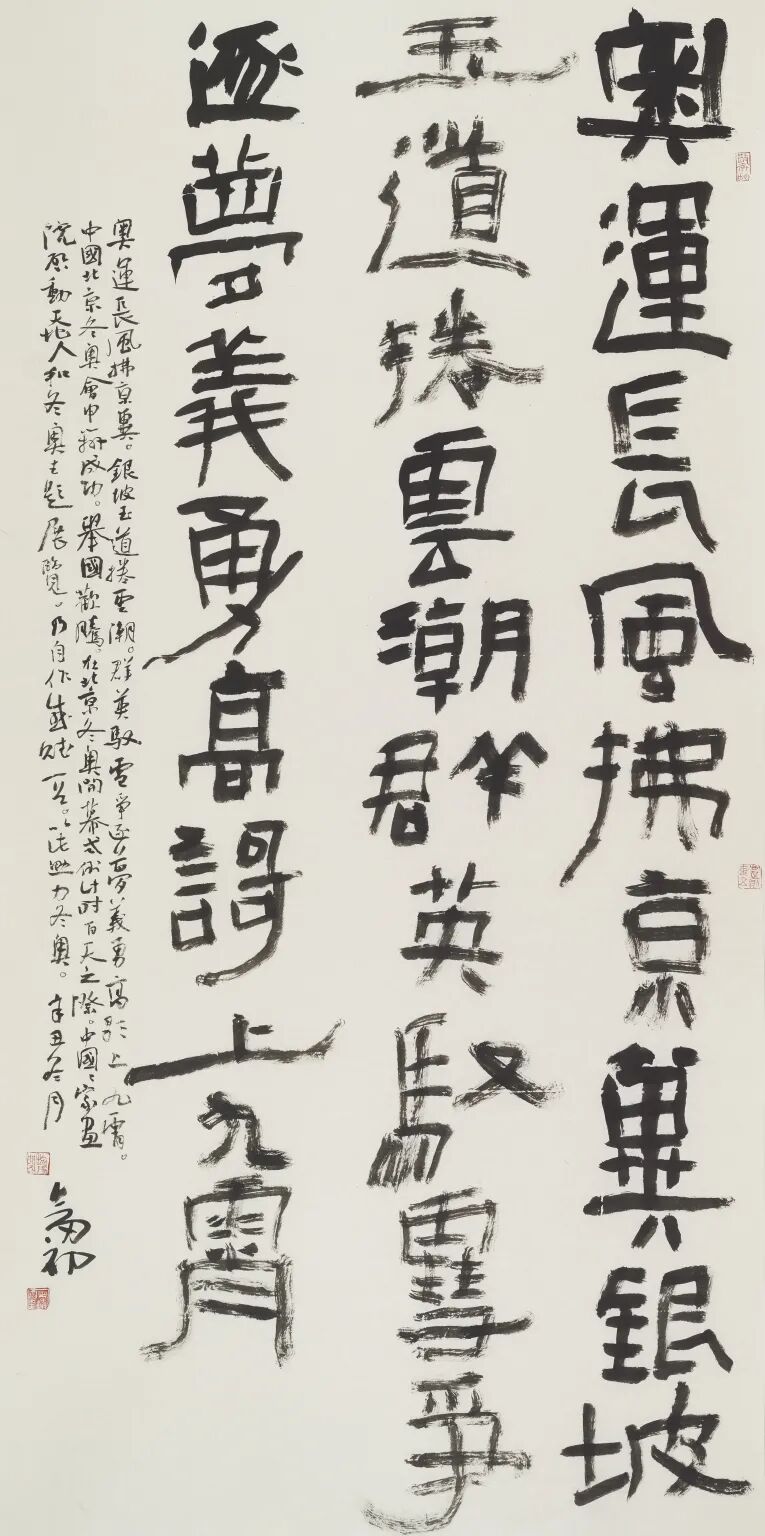 奧運長風拂京冀銀坡
玉道捲雲潮群英馭雪爭
逐夢義勇高謌上九霄
奧運長風拂京冀。銀坡玉道捲雲潮。群英馭雪爭逐夢。義勇高歌上九霄。
中國北京冬奧會申辦成功。舉國歡騰。在北京冬奧開幕式倒計時百天之際。中國國家畫
院啟動天地人和冬奧主題展覽。乃自作感賦一首。以此助力冬奧。辛丑冬月